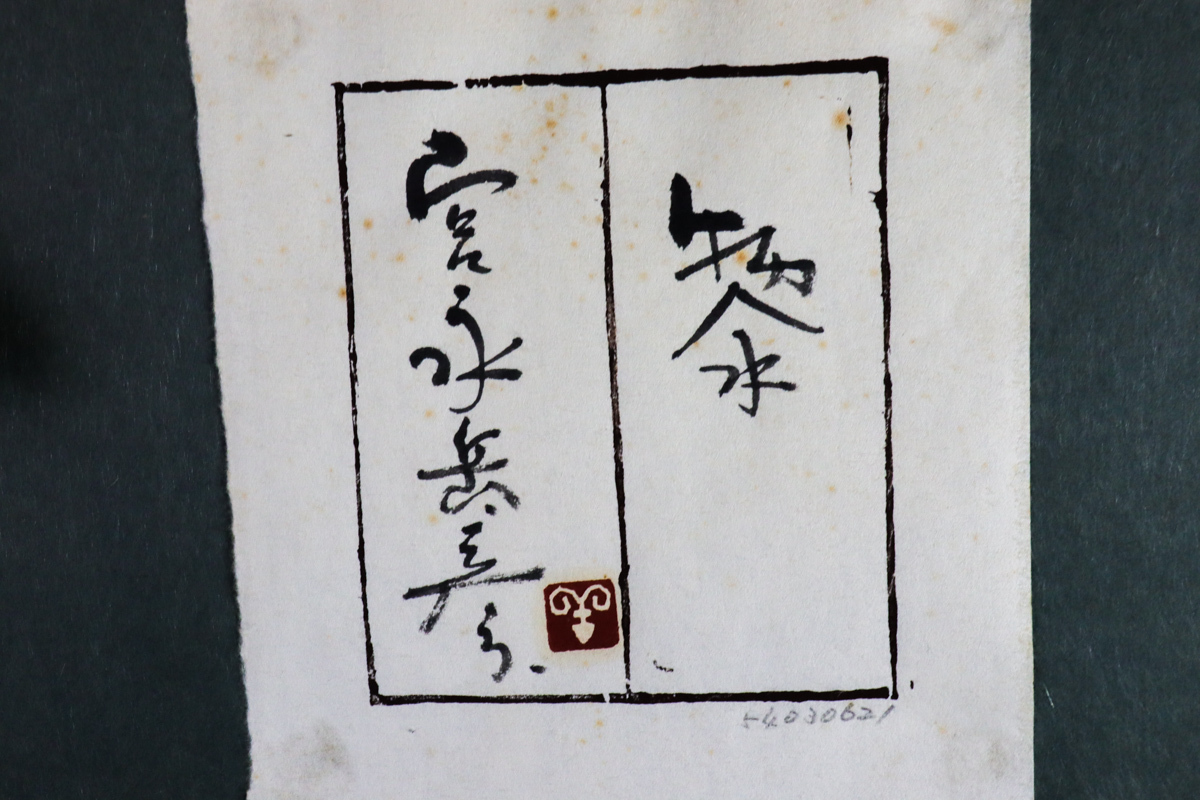 黎
宮永岳彦
54030621